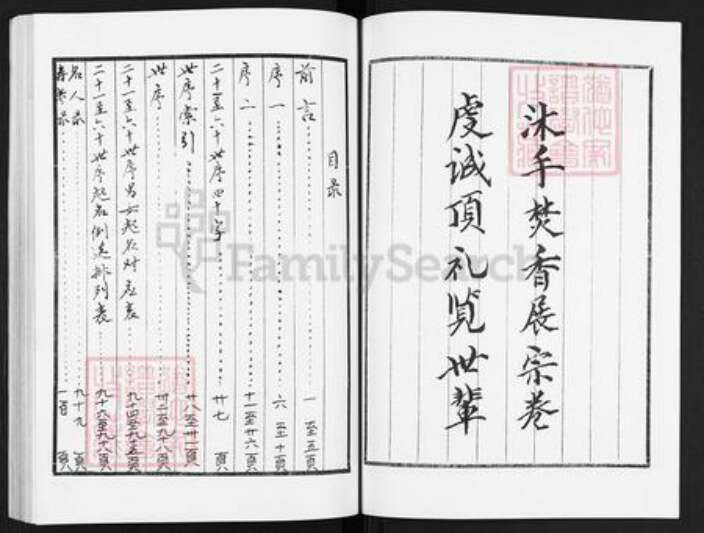 沐手焚香展宗卷
虔诚頂礼览世輩
目录
前言 一至五頁
序一 六至十頁
序二 十一至廿六頁
二十一至六十世序四十字 廿七頁
世序索引 廿八至卅一頁
世序 卅二至九十八頁
二十一至六十世序男女起名对应表 九十四至九十五頁
二十一至六十世序起名例选排列表 九十六至九十八頁
名人录 九十九頁
录 一百頁
FamilySearch